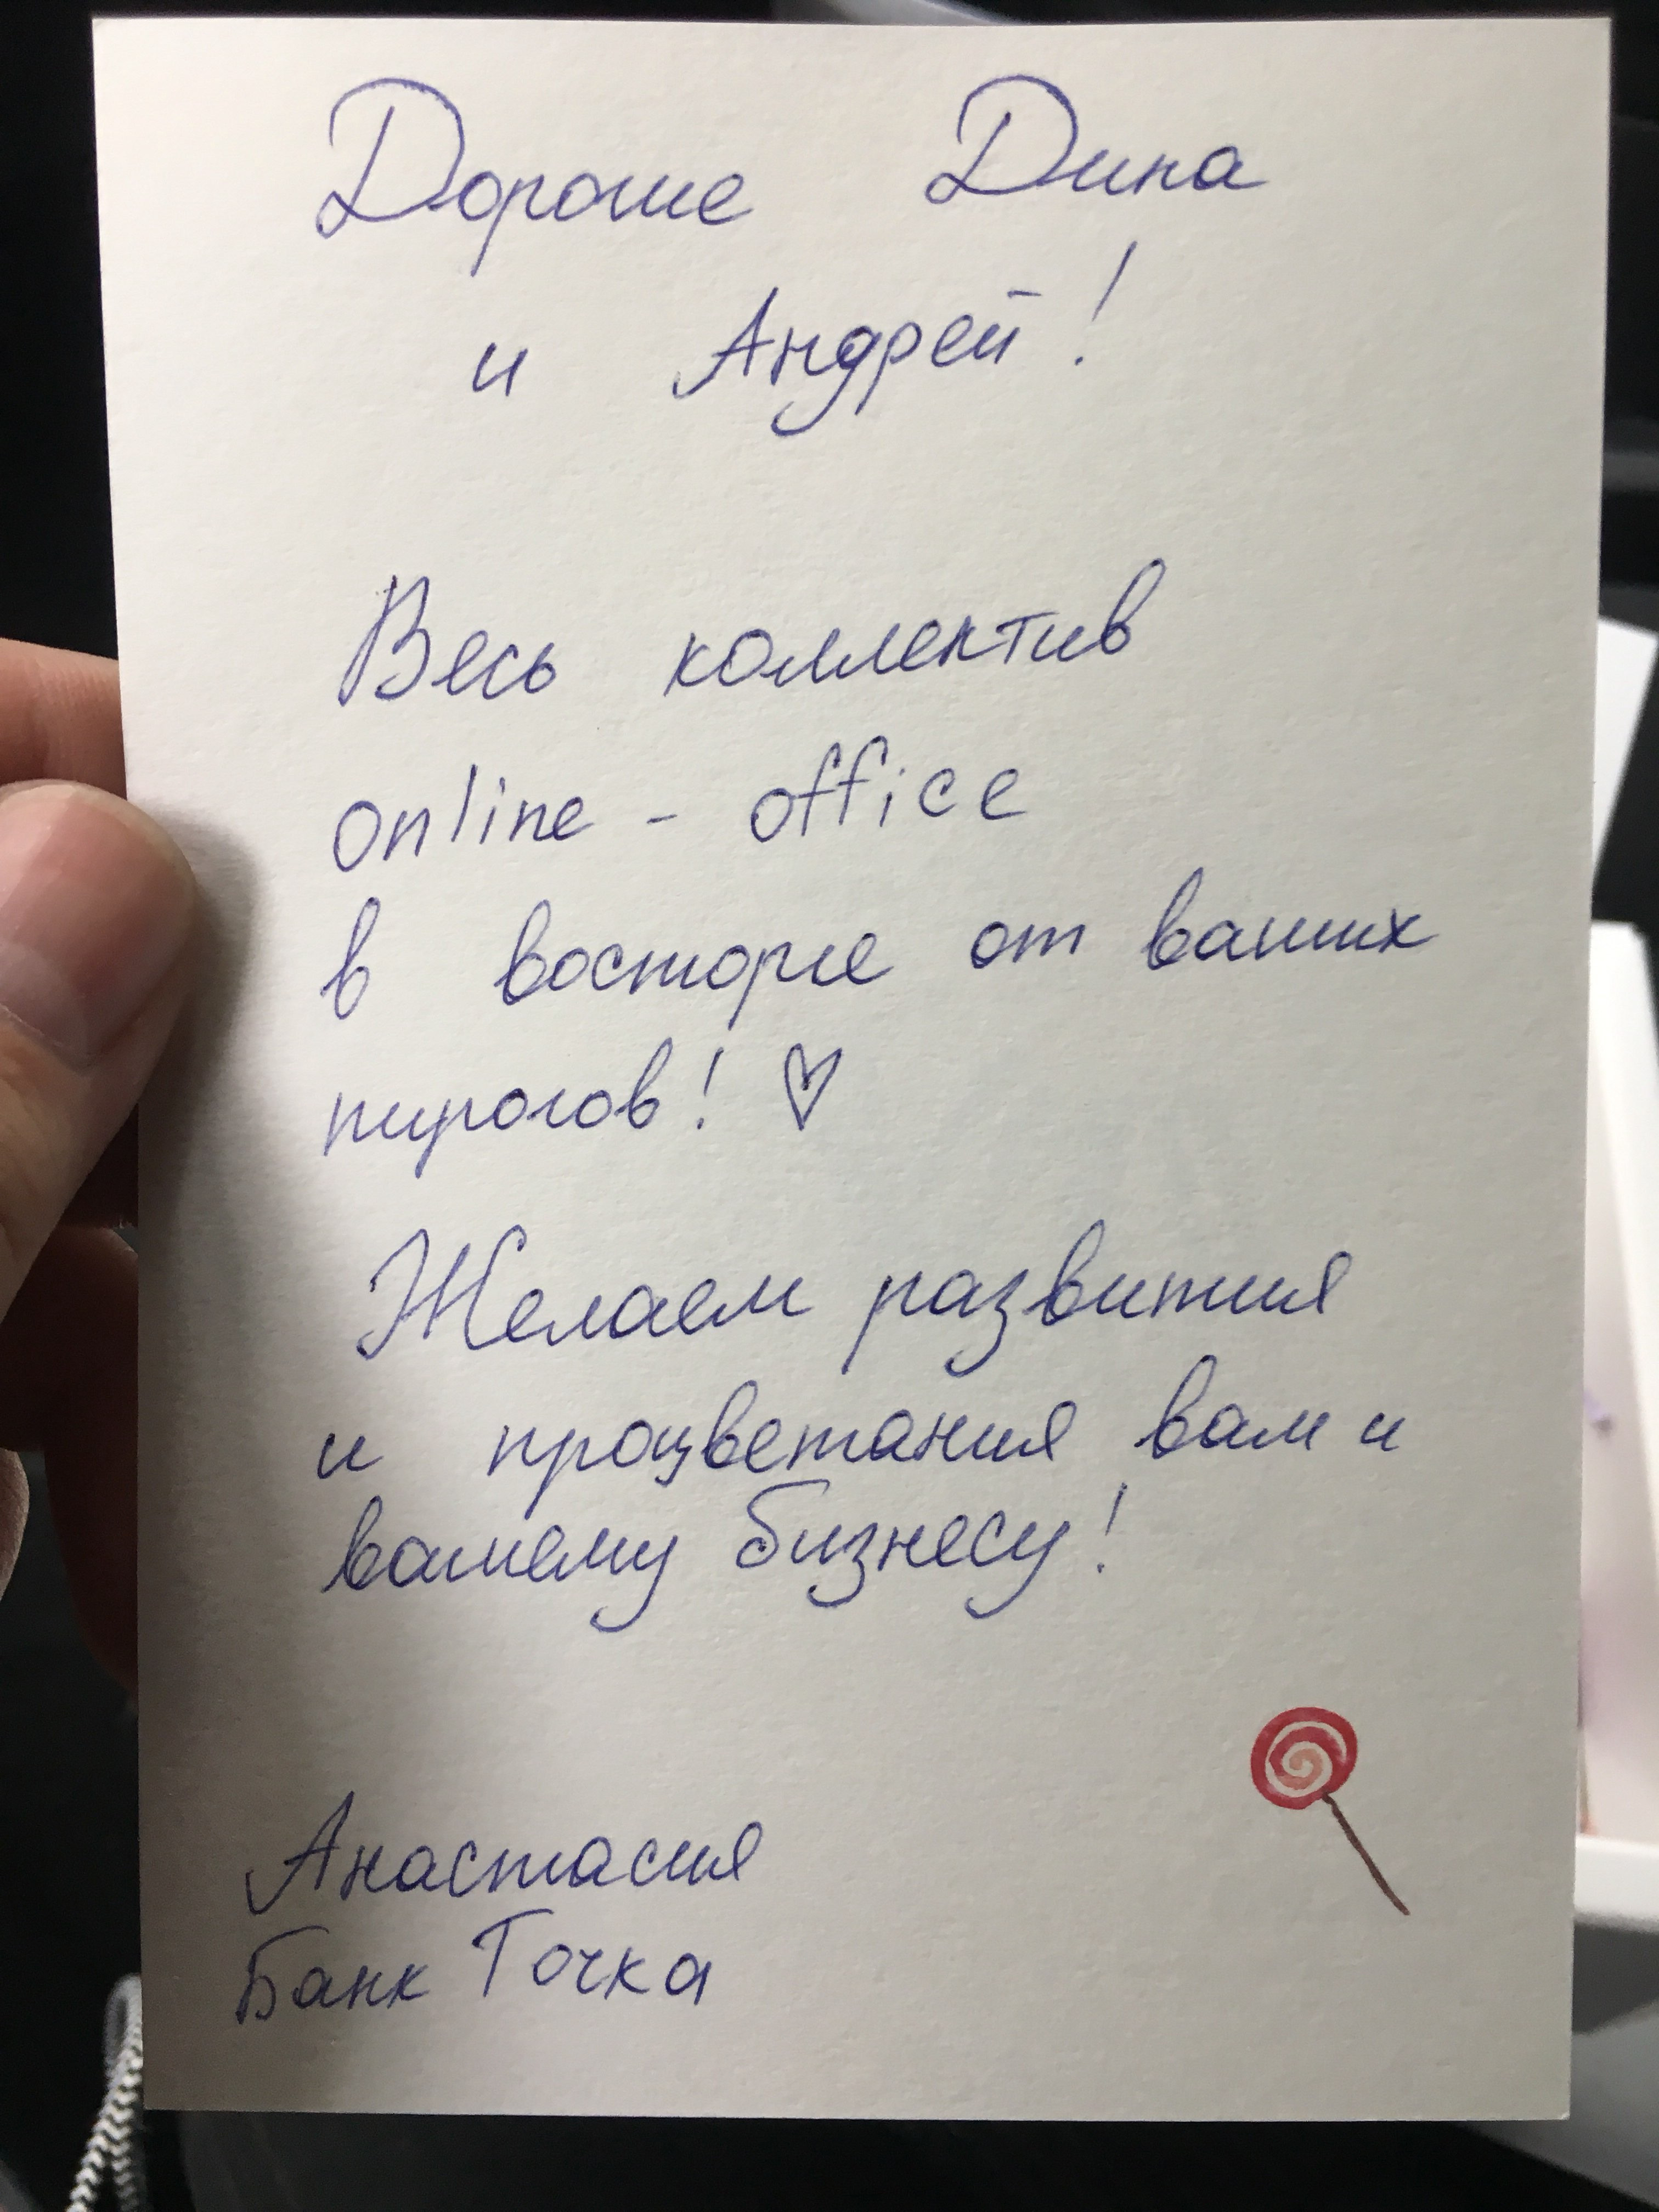 Дорогие Дина
и Андрей!
Весь коллектив
online - office
в восторге от ваших
пирогов! ♡
Желаем развития
и процветания вам и
вашему бизнесу!
Анастасия
Банк Точка